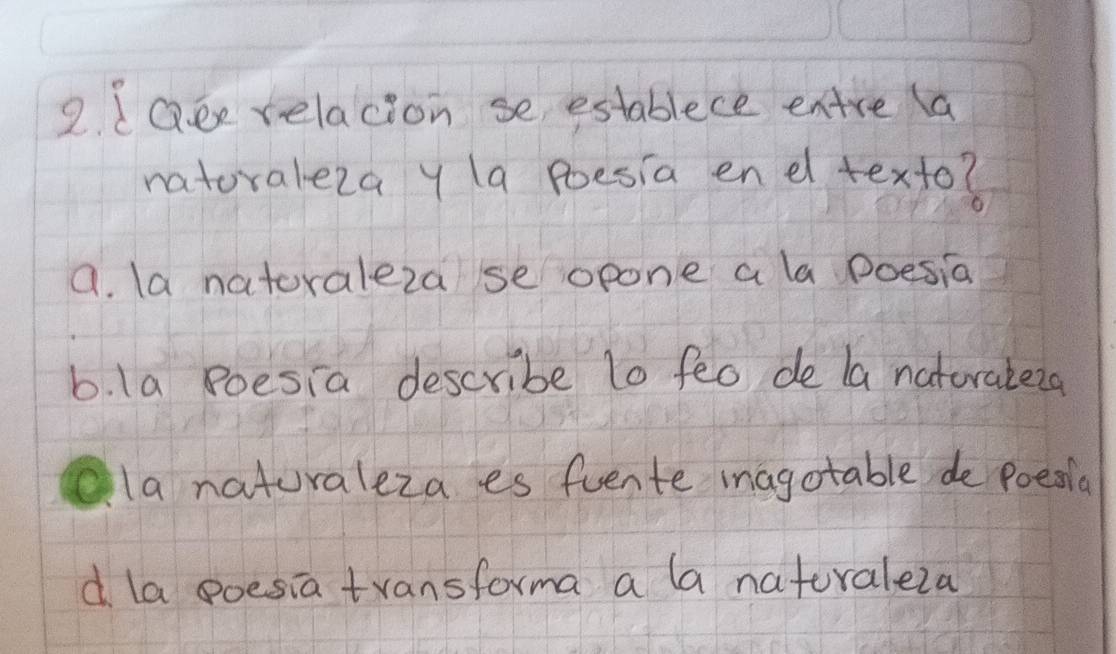 2. ¿Qée relacion se establece entre la
naturaleza y la Poesía en el texto?
a. la naturaleza se opone a la Poesía
b. la Poesía describe lo feo de la naturaleza
c. la naturaleza es fuente inagotable de Poesía
d. la Poesía transforma a la naturaleza